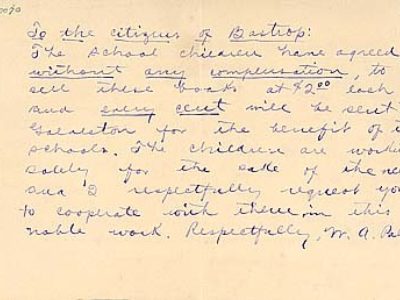 To the citizens of Bastrop:
The school children have agreed
without any compensation, to
sell these books at $2.00 each
and every cent will be sent
Galveston for the benefit of t
schools. The children are work
solely for the sake of the ne
and I respectfully request yo
to cooperate with them, in this
noble work. Respectfully, W. A. Pal